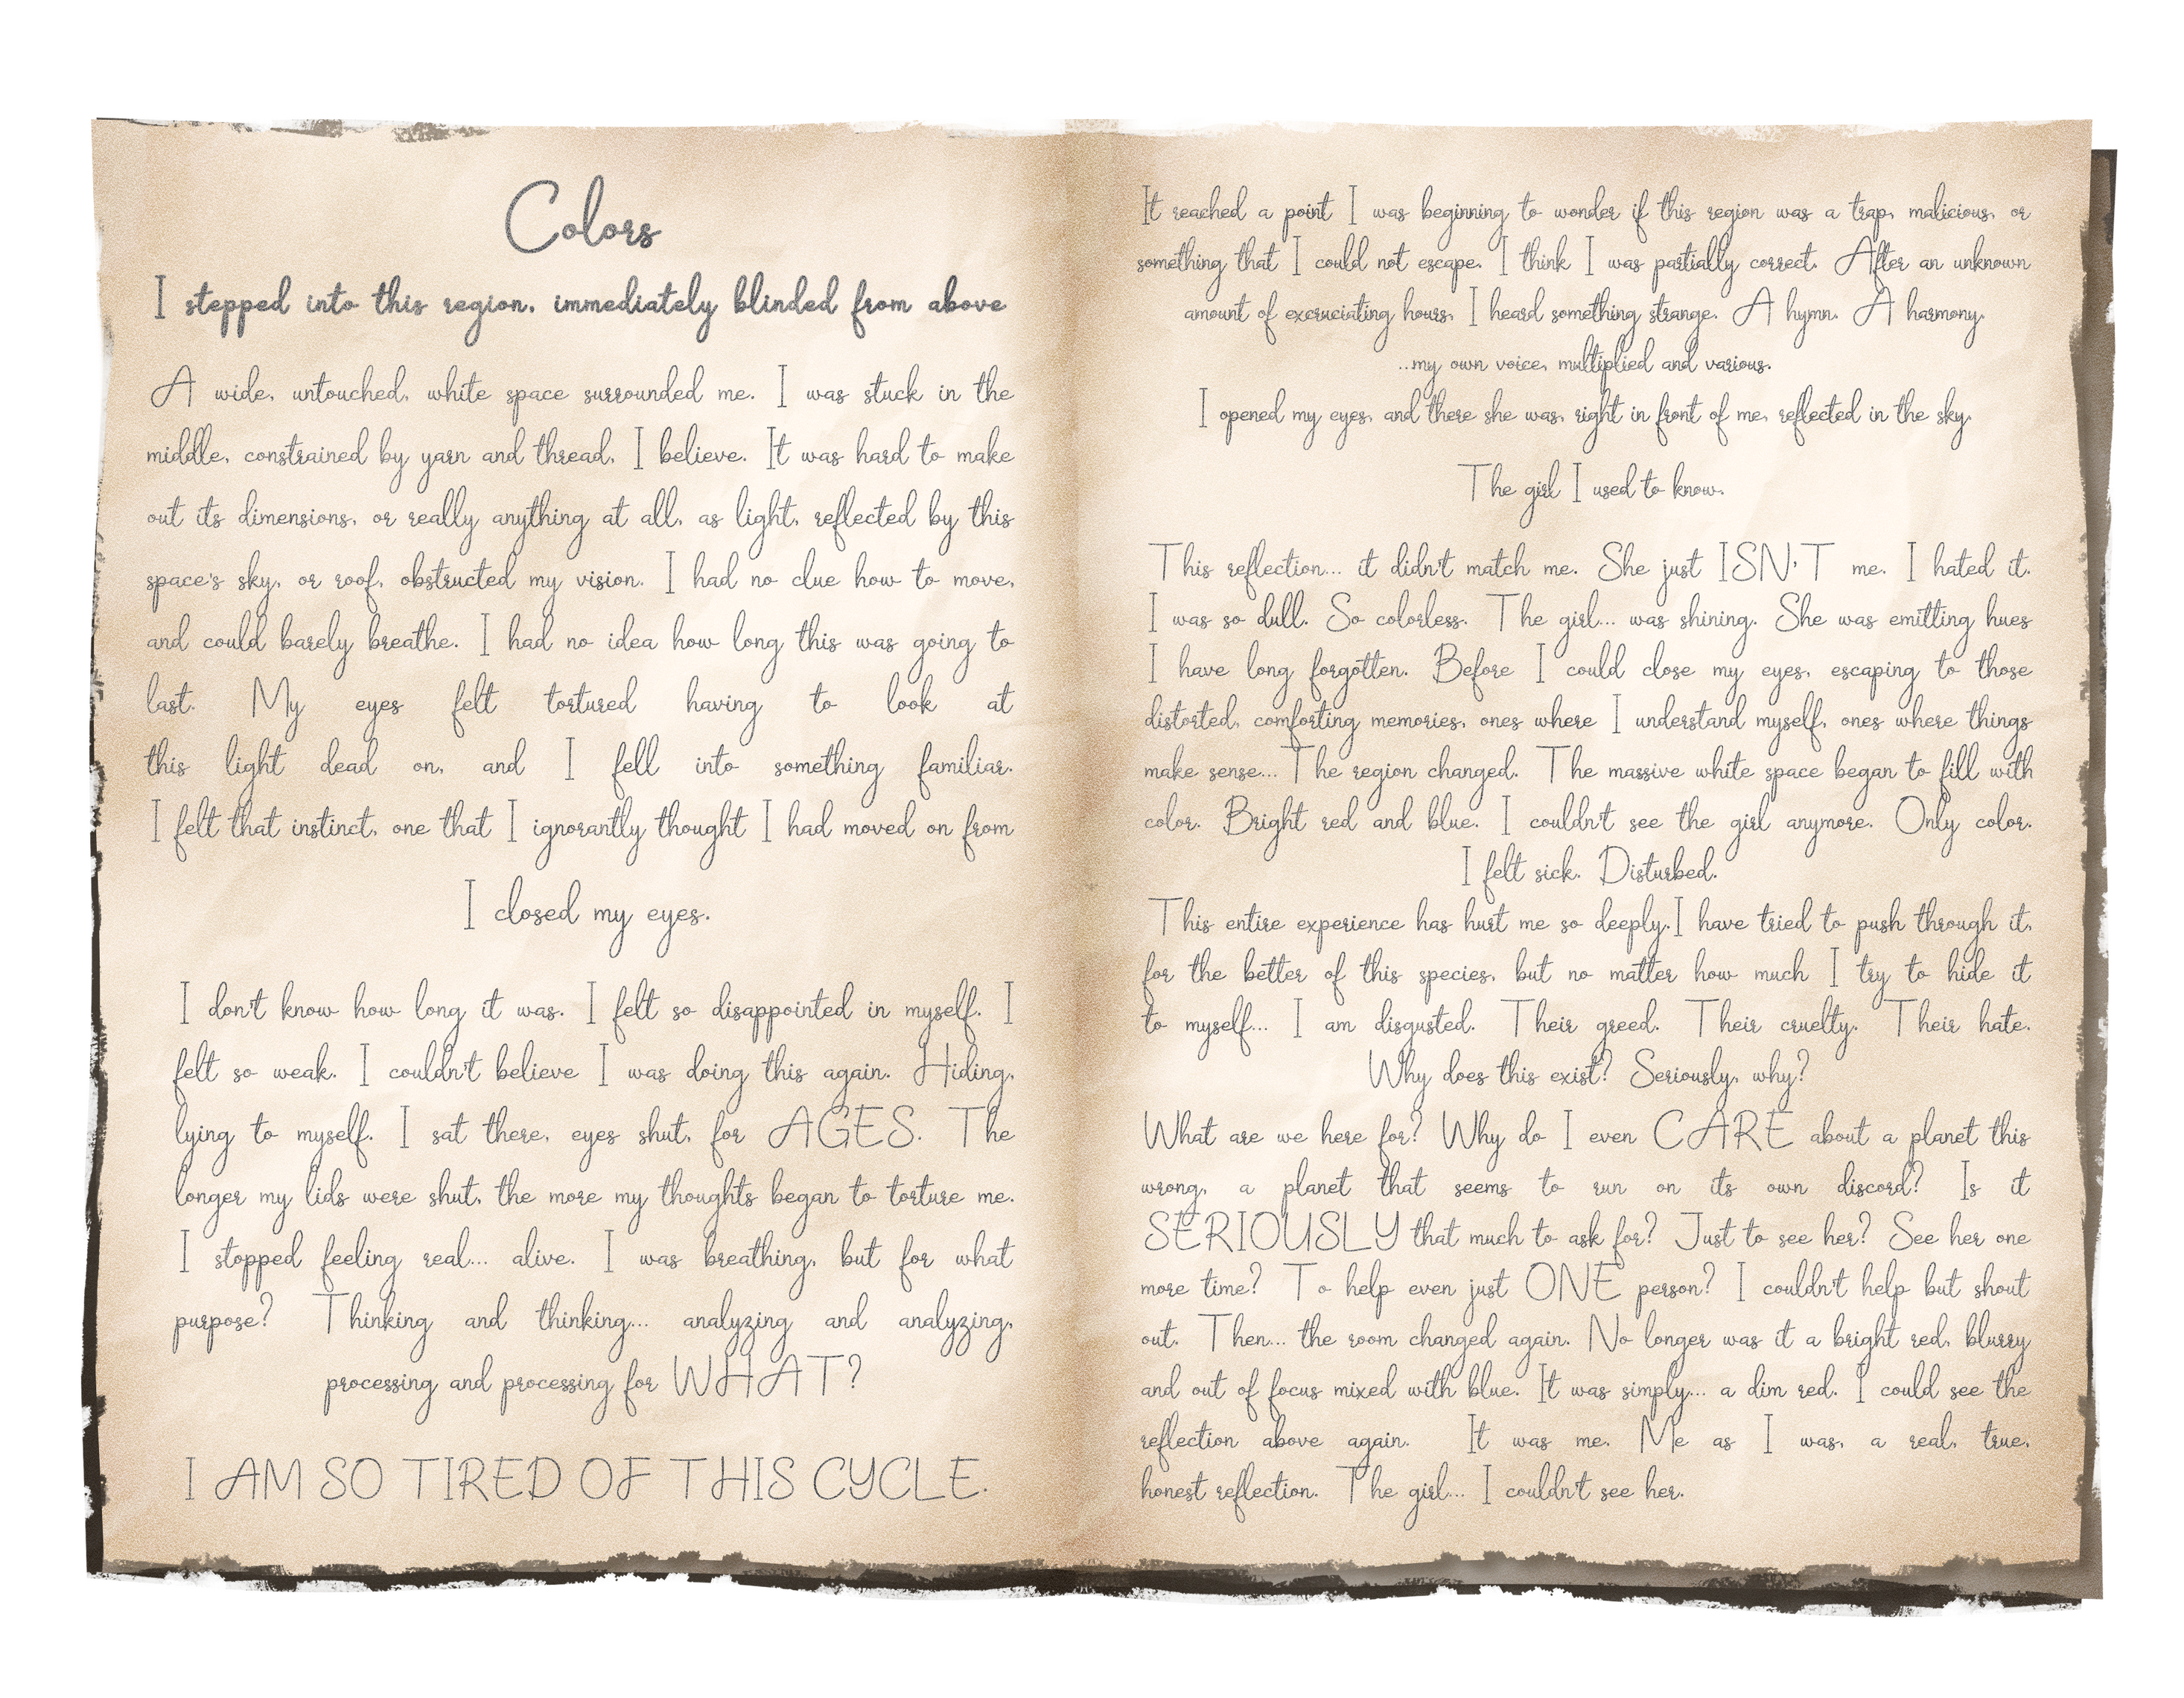 Colors
I stepped into this region, immediately blinded from above
A wide, untouched, white space surrounded me. I was stuck in the
middle, constrained by yarn and thread, I believe. It was hard to make
out its dimensions, or really anything at all, as light, reflected by this
space's sky, or roof, obstructed my vision. I had no clue how to move,
and could barely breathe. I had no idea how long this was going to
last. My eyes felt tortured having to look at
this light dead on, and I fell into something familiar.
I felt that instinct, one that I ignorantly thought I had moved on from
I closed my eyes.
I don't know how long it was. I felt so disappointed in myself. I
felt so weak. I couldn't believe I was doing this again. Hiding,
lying to myself. I sat there, eyes shut, for AGES. The
longer my lids were shut, the more my thoughts began to torture me.
I stopped feeling real... alive. I was breathing, but for what
purpose? Thinking and thinking... analyzing and analyzing,
processing and processing for WHAT?
I AM SO TIRED OF THIS CYCLE.
It reached a point I was beginning to wonder if this region was a trap, malicious, or
something that I could not escape. I think I was partially correct. After an unknown
amount of excruciating hours, I heard something strange. A hymn. A harmony.
...my own voice, multiplied and various.
I opened my eyes, and there she was, right in front of me, reflected in the sky.
The girl I used to know.
This reflection... it didn't match me. She just ISN'T me. I hated it.
I was so dull. So colorless. The girl... was shining. She was emitting hues
I have long forgotten. Before I could close my eyes, escaping to those
distorted, comforting memories, ones where I understand myself, ones where things
make sense... The region changed. The massive white space began to fill with
color. Bright red and blue. I couldn't see the girl anymore. Only color.
I felt sick. Disturbed.
This entire experience has hurt me so deeply.I have tried to push through it,
for the better of this species, but no matter how much I try to hide it
to myself... I am disgusted. Their greed. Their cruelty. Their hate.
Why does this exist? Seriously, why?
What are we here for? Why do I even CARE about a planet this
wrong, a planet that seems to run on its own discord? Is it
SERIOUSLY that much to ask for? Just to see her? See her one
more time? To help even just ONE person? I couldn't help but shout
out. Then... the room changed again. No longer was it a bright red, blurry
and out of focus mixed with blue. It was simply... a dim red. I could see the
reflection above again. It was me. Me as I was, a real, true,
honest reflection. The girl... I couldn't see her.